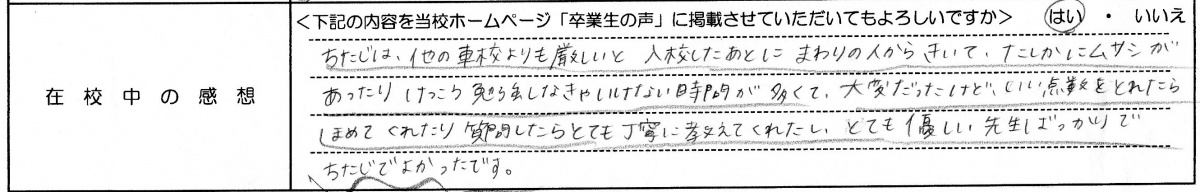 <下記の内容を当校ホームページ「卒業生の声」に掲載させていただいてもよろしいですか> はい ・ いいえ
在校中の感想
ちたじは、他の車校よりも厳しいと 入校したあとに まわりの人からきいて、たしかにムサシが
あったり けっこう勉強しなきゃいけない時間が多くて、大変だったけど、いい点数をとれたら
ほめてくれたり 質問したらとても丁寧に教えてくれたし、とても優しい先生ばっかりで
ちたじでよかったです。